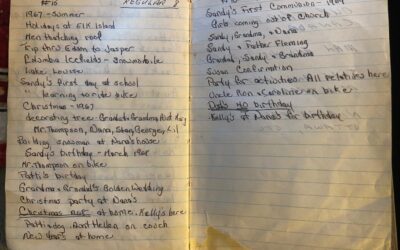 #16 REGULAR 8
1967 - Summer
Holidays at Elk Island
Men thatching roof
Trip thru Edson to Jasper
Columbia Icefields - Snowmobile
Lake Louise
Sandy's first day at school
" learning to ride bike
Christmas - 1967
decorating tree. Grandad + Grandma Aunt May
Mr. Thompson, Dana, Stan, George, Lil
Building snowman at Nana's house
Sandy's birthday - March 1968
Mr. Thompson on bike
Patti's birthday
Grandma + Grandad's Golden Wedding
Christmas party at Dana's
Christmas at home. Kelly's here
Patti + dog. Aunt Hellen on couch
New Years at home
Sandy's First Communion - 1969
Girls coming out of church
Sandy, Grandma, + Dana
Sandy + Father Fleming
Grandad, Sandy + Grandma
Susan Confirmation
Party for activation. All relatives here
Uncle Ron + Caroline on bike
Dad's 40 birthday
Kelly's at Nana's for birthday